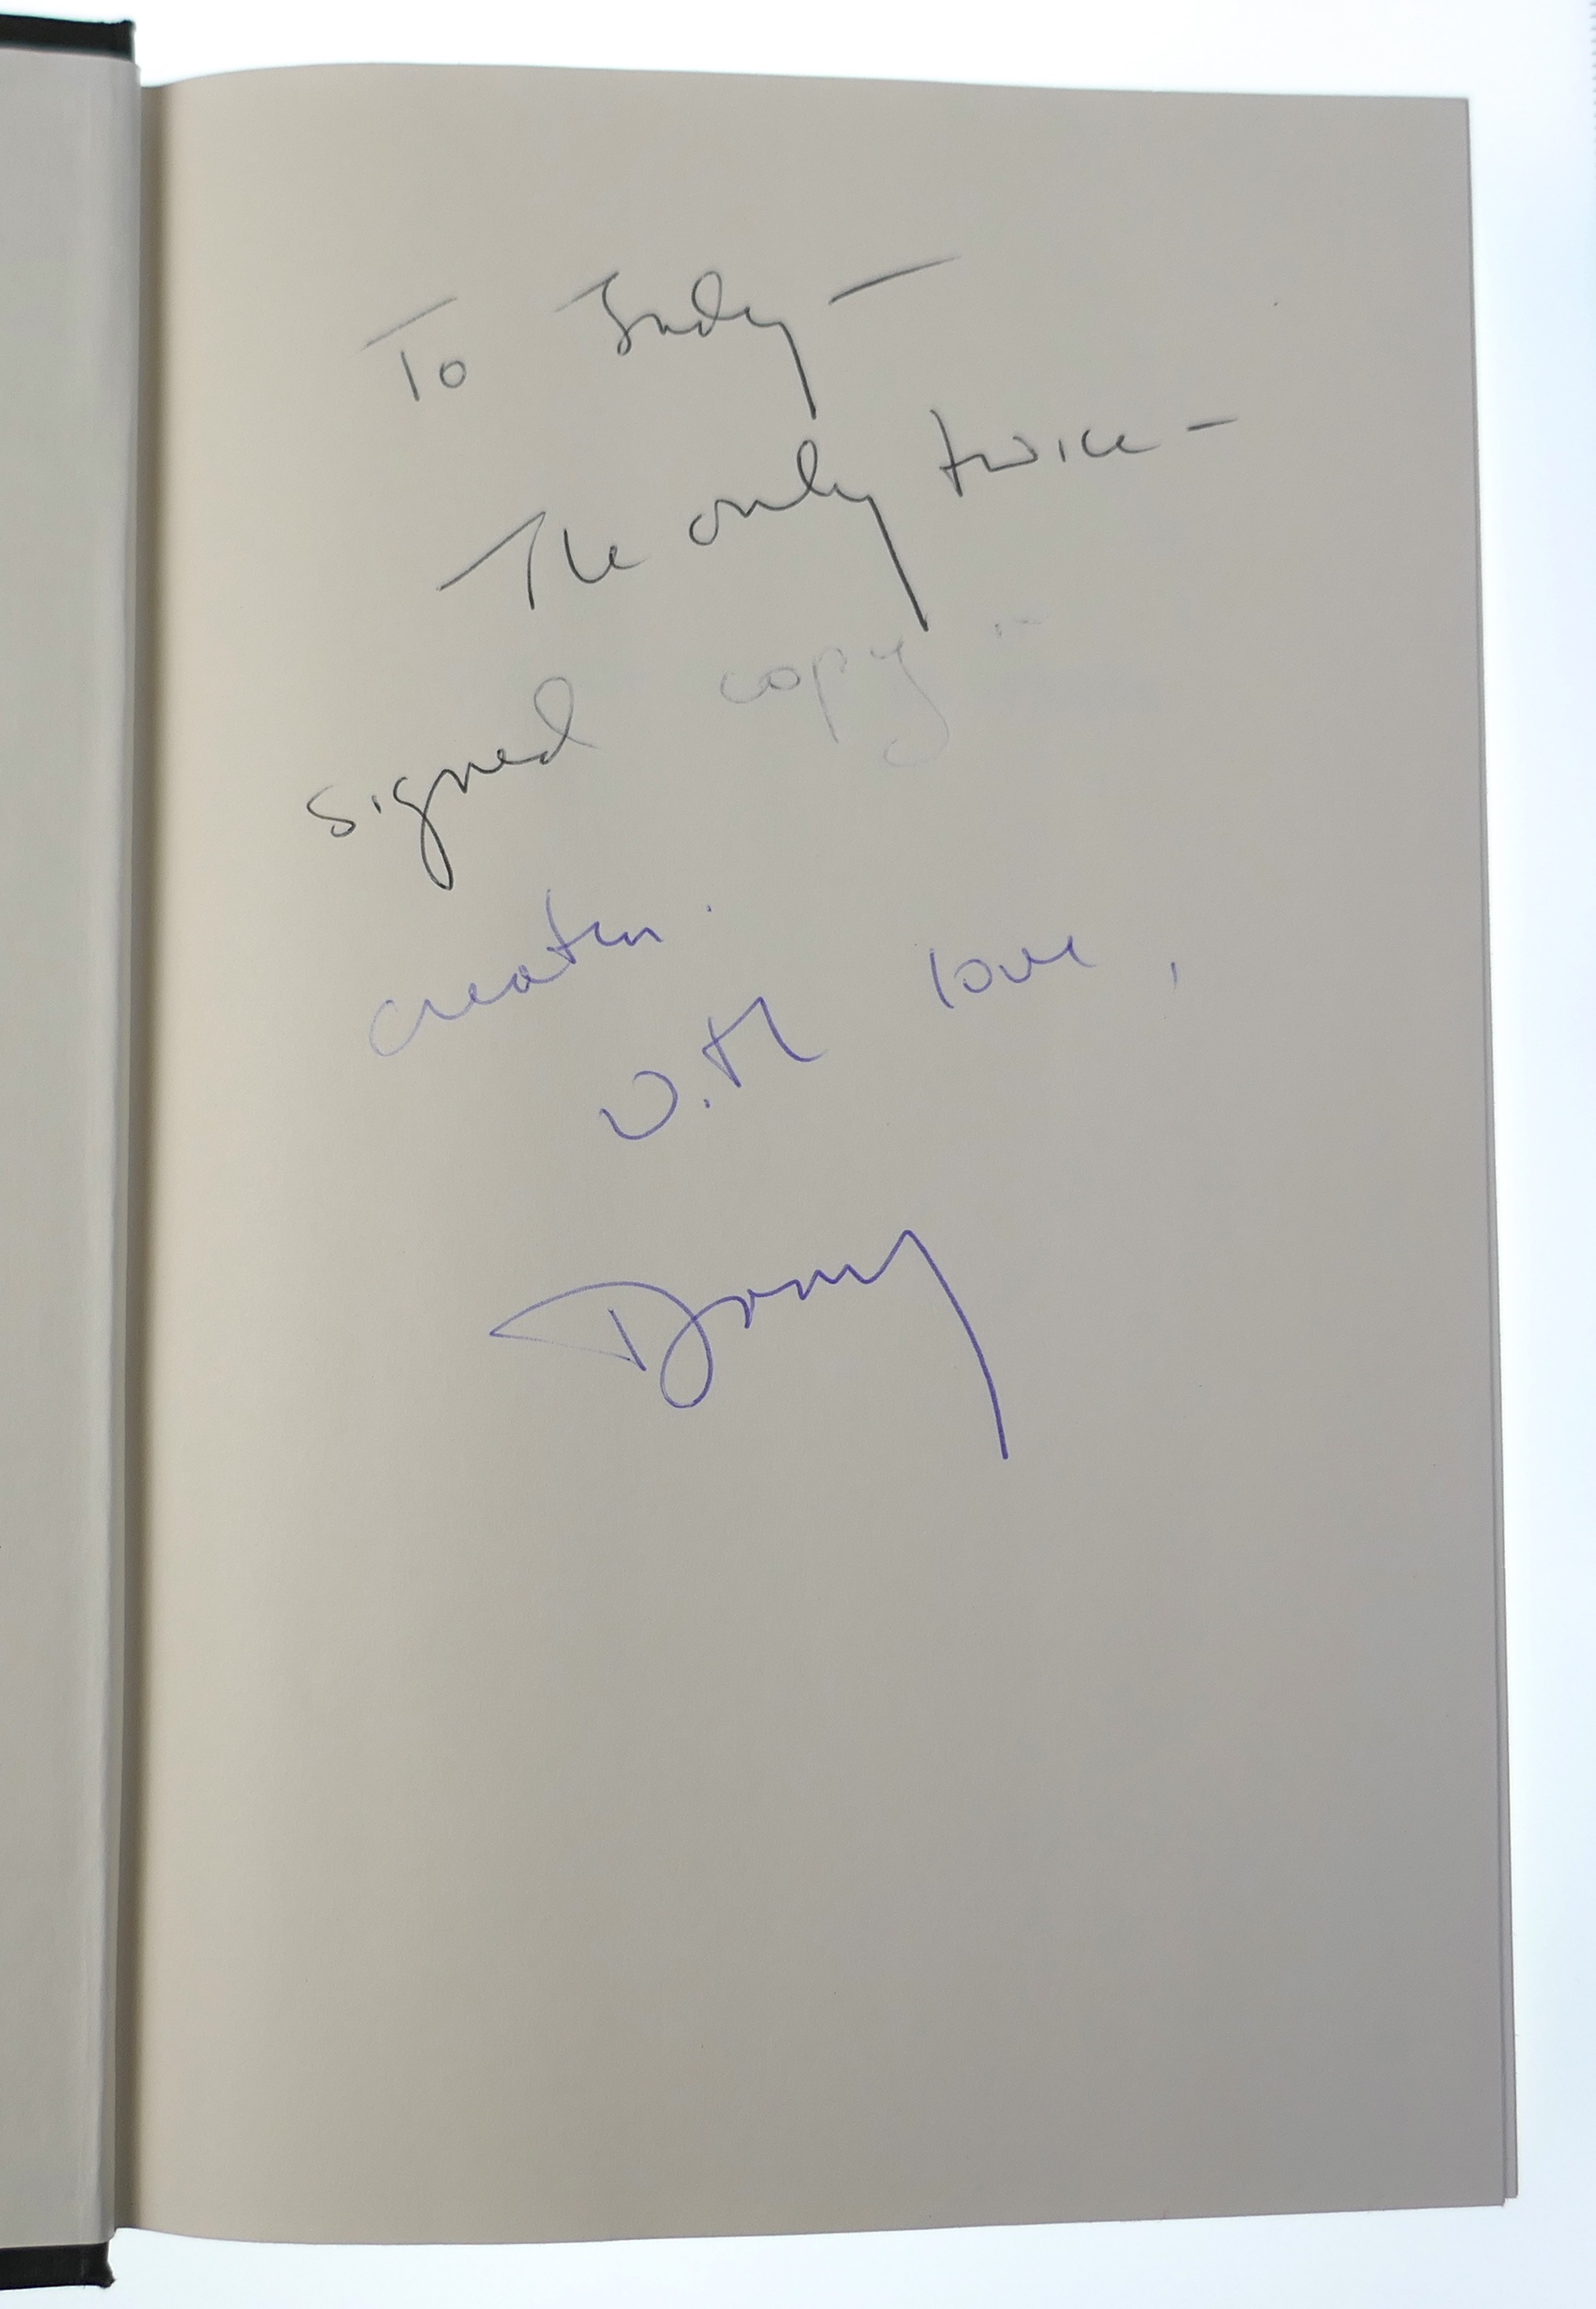 To Judy —
The only twice -
signed copy in
creation.
With love,
Danny